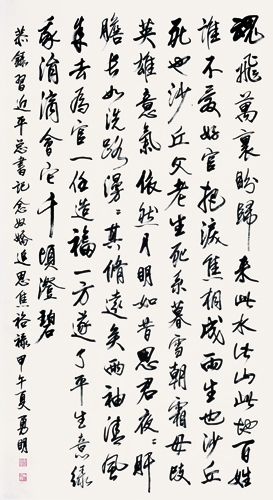 魂飛萬裏盼歸来此水此山此地百姓
誰不愛好官把淚焦桐成雨生也沙丘
死也沙丘父老生死系暮雪朝霜毋改
英雄意氣依然月明如昔思君夜〻肝
膽长如洗路漫〻其脩遠矣兩袖清風
来去為官一任造福一方遂了平生意緑
我涓滴會它千頃澄碧
恭錄習近平总書记念奴嬌追思焦裕禄甲午夏勇明